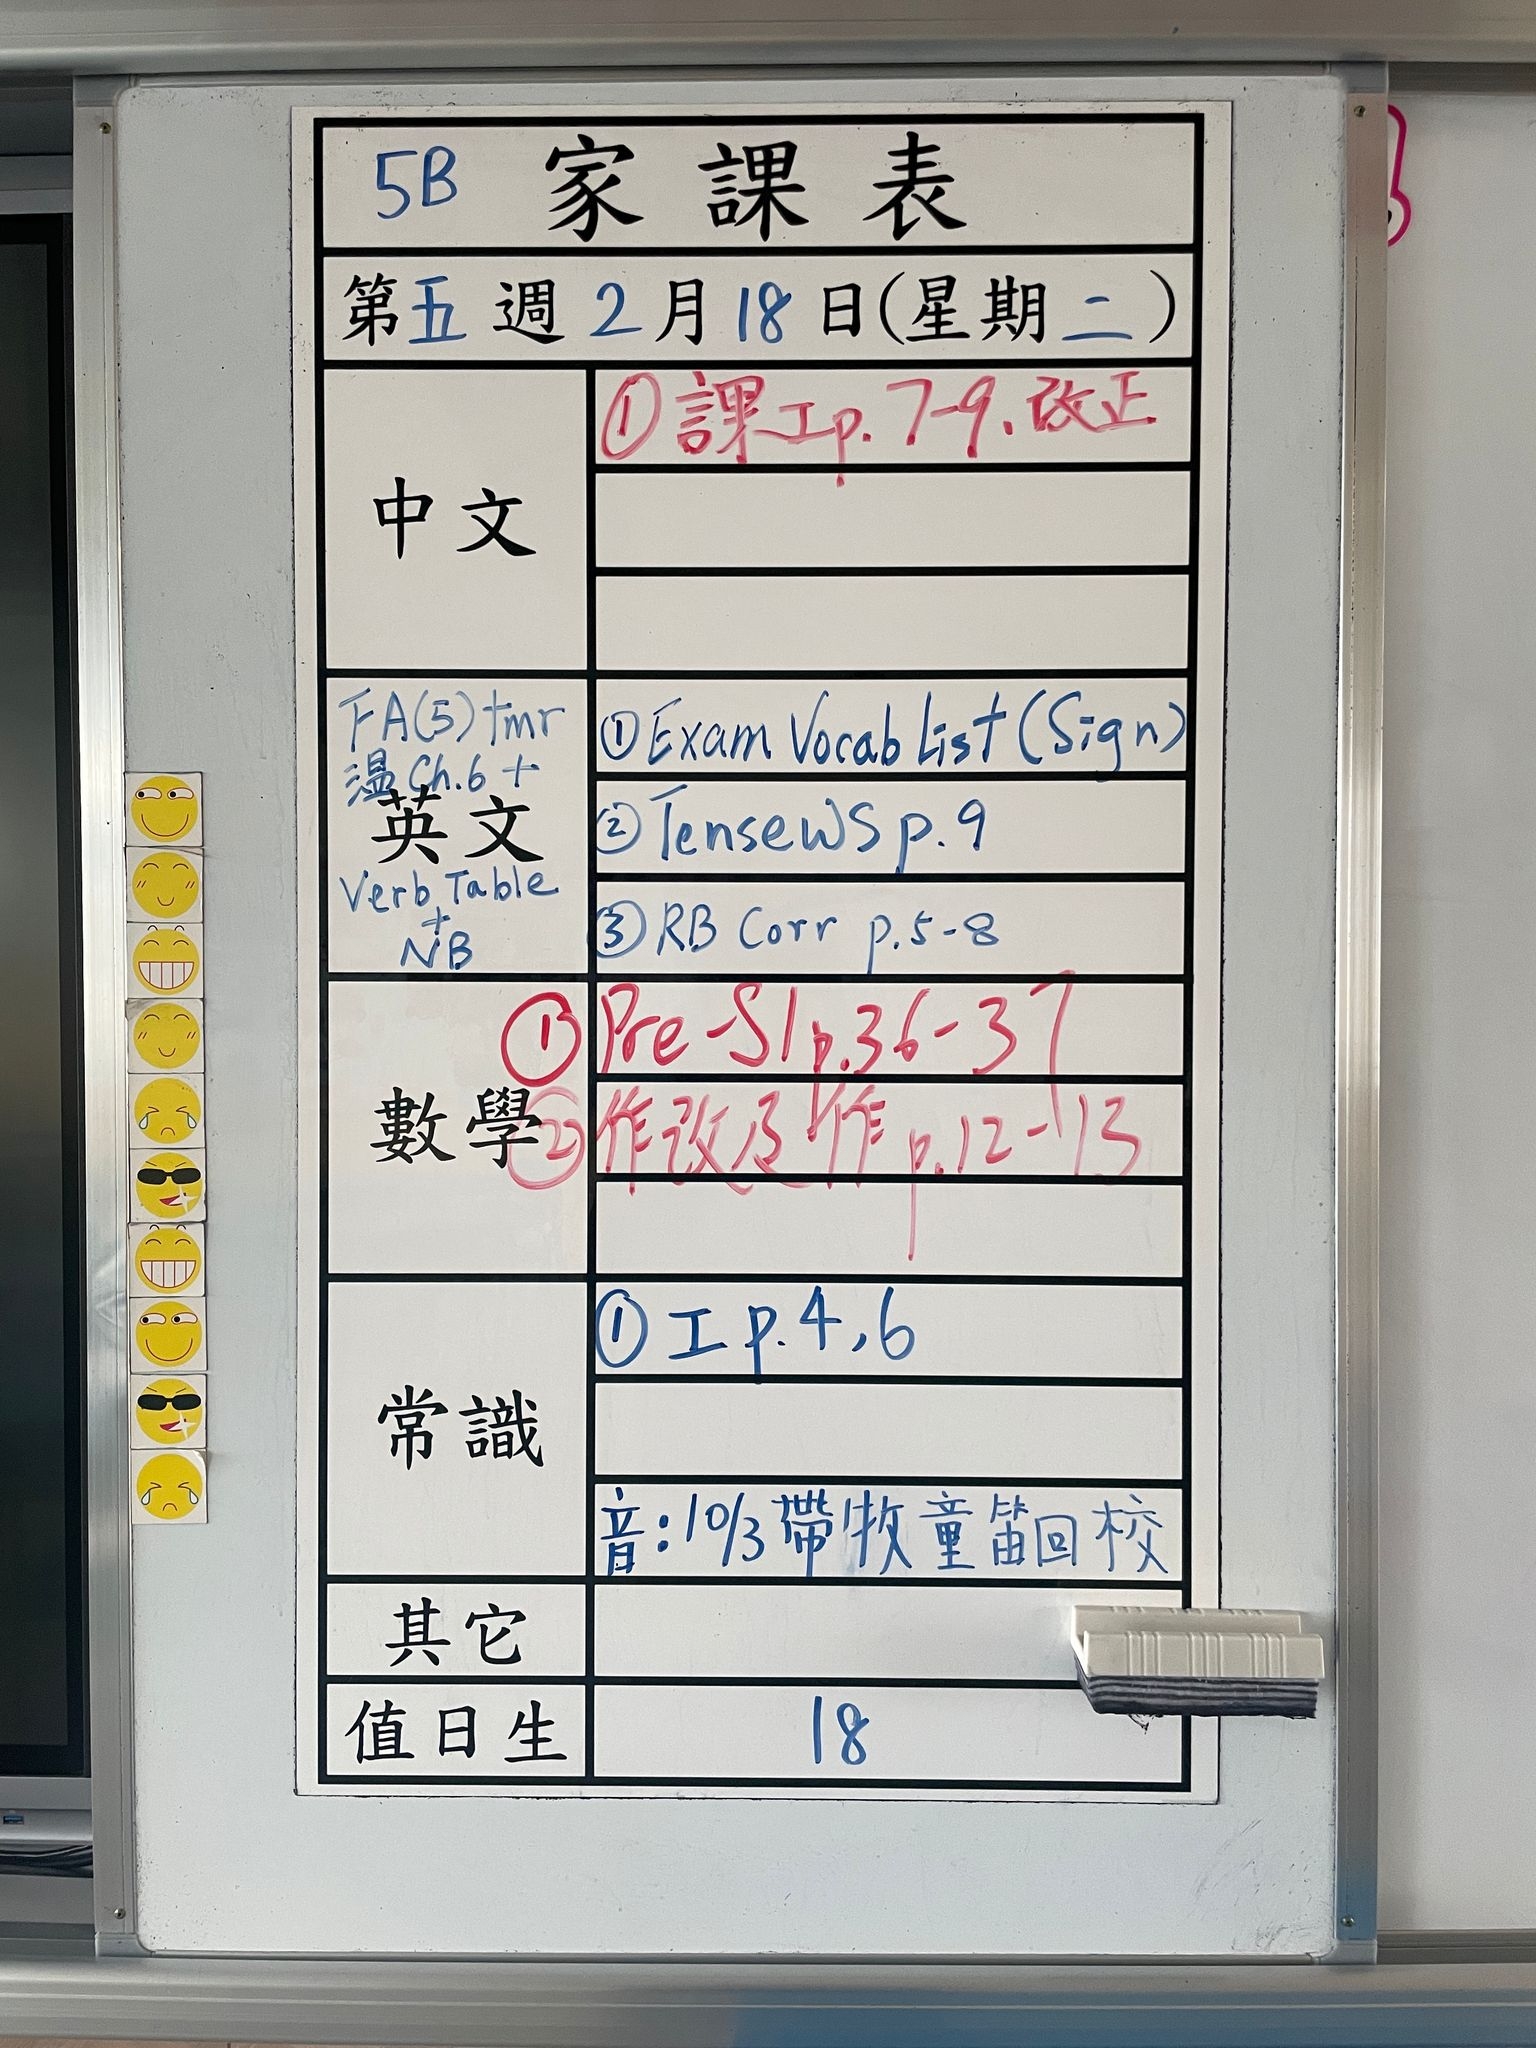 5B 家課表
第五週2月18日(星期二)
中文
①課工p.7-9、改正
FA(5) tmr
溫Ch.6 +
英文
Verb Table
+
NB
①Exam Vocab List (Sign)
②Tense WS p.9
③RB Corr p.5-8
數學
①Pre-S1 p.36-37
②作改及作p.12-13
常識
①工p.4,6
音:10/3帶牧童笛回校
其它
值日生
18